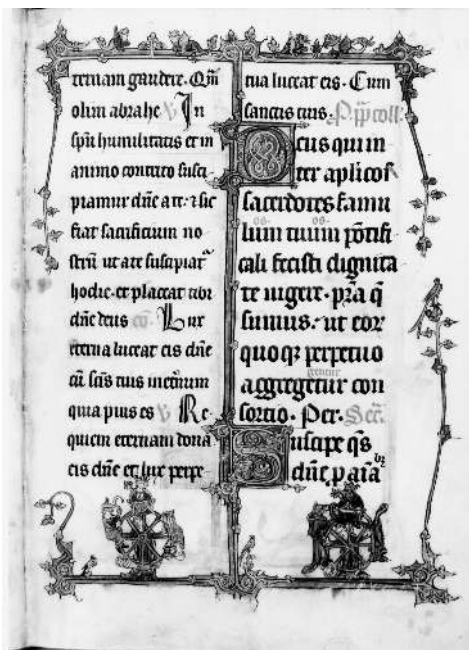 ternam gaudere. Qm
olim abrahe ℣ In
spu humilitatis et in
animo contrito susci
piamur dne a te. ⁊ sic
fiat sacrificium no
strū ut a te suscipiat
hodie. et placeat tibi
dne deus cō. Lux
eterna luceat eis dne
cū scis tuis in eternum
quia pius es ℣ Re
quiem eternam dona
eis dne et lux perpe
tua luceat eis. Cum
sanctis tuis. P pp coll.
Deus qui in
ter aplicos
sacerdotes famu
os os
lum tuum pōtifi
cali fecisti dignita
te uigere. pra q̄
sumus. ut eor
quoq perpetuo
gentur
aggregetur con
sortio. Per. Secr.
Suscipe qs
dne p aīa
bz